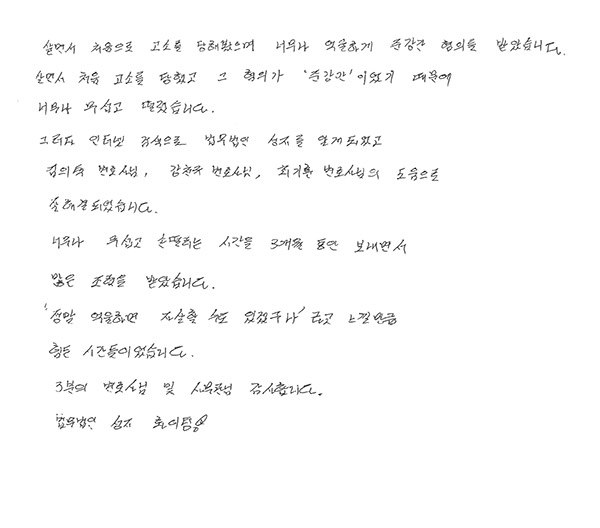 살면서 처음으로 고소를 당해봤으며 너무나 억울하게 준강간 혐의를 받았습니다.
살면서 처음 고소를 당했고 그 혐의가 '준강간'이었기 때문에
너무나 무섭고 떨렸습니다.
그러다 인터넷 검색으로 법무법인 성지를 알게되었고
변호사님, 변호사님, 최기환 변호사님의 도움으로
잘해결되었습니다.
너무나 무섭고 손떨리는 시간을 3개월 동안 보내면서
많은 조력을 받았습니다.
'정말 억울하면 자살할 수도 있겠구나' 라고 느낄만큼
힘든 시간들이었습니다.
3분의 변호사님 및 사무장님 감사합니다.
법무법인 성지 화이팅